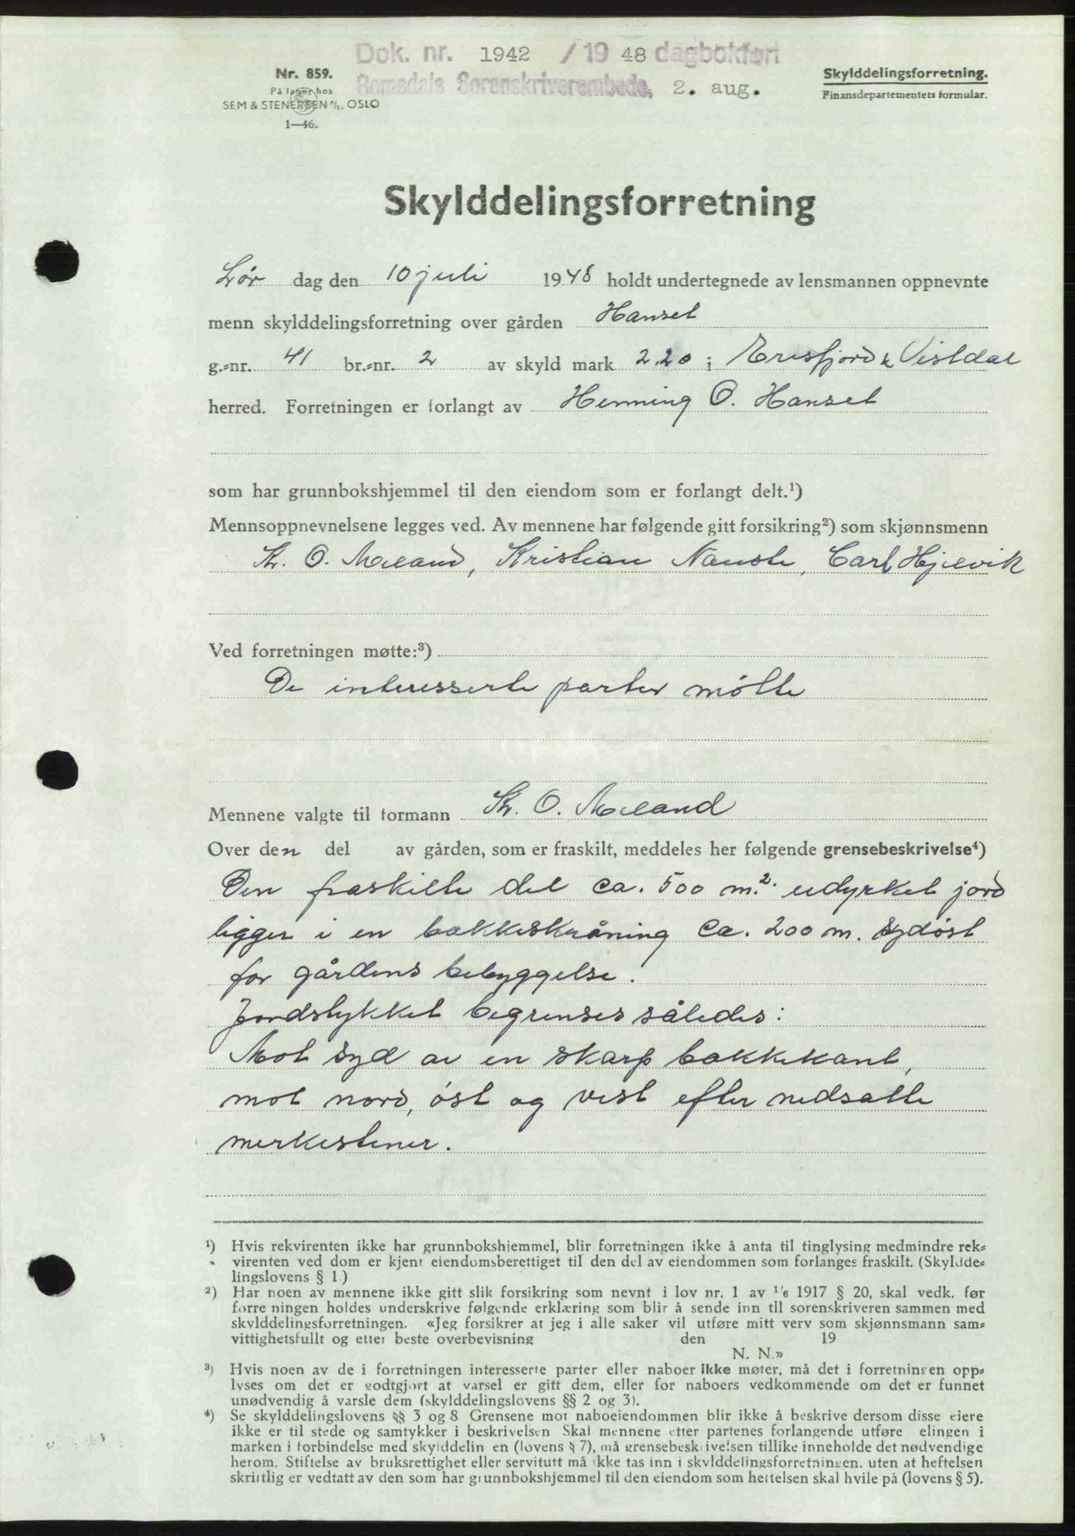 Dok. nr. 1942 / 19 48 dagbokført
Romsdals Sorenskriverembede, 2. aug.
Nr. 859.
På lager hos
SEM & STENERSEN A/S, OSLO
1—46.
Skylddelingsforretning.
Finansdepartementets formular.
Skylddelingsforretning
Lør dag den 10 juli 1948 holdt undertegnede av lensmannen oppnevnte
menn skylddelingsforretning over gården Hanset
g.-nr. 41 br.-nr. 2 av skyld mark 2.20 i Eresfjord & Vistdal
herred. Forretningen er forlangt av Henning O. Hanset
som har grunnbokshjemmel til den eiendom som er forlangt delt.¹)
Mennsoppnevnelsene legges ved. Av mennene har følgende gitt forsikring²) som skjønnsmenn
O. Meland, Kristian Nauste, Carl Hjelvik
Ved forretningen møtte:³)
De interesserte parter møtte
Mennene valgte til formann O. Meland
Over den del av gården, som er fraskilt, meddeles her følgende grensebeskrivelse⁴)
Den fraskilte del ca. 500 m². udyrket jord
ligger i en bakkeskråning ca. 200 m. sydøst
for gårdens bebyggelse.
Jordstykket begrenses således:
Mot syd av en skarp bakkekant,
mot nord, øst og vest efter nedsatte
merkestener.
¹) Hvis rekvirenten ikke har grunnbokshjemmel, blir forretningen ikke å anta til tinglysing medmindre rek-
virenten ved dom er kjent eiendomsberettiget til den del av eiendommen som forlanges fraskilt. (Skyldde-
lingslovens § 1)
²) Har noen av mennene ikke gitt slik forsikring som nevnt i lov nr. 1 av 1/6 1917 § 20, skal vedk. før
forretningen holdes underskrive følgende erklæring som blir å sende inn til sorenskriveren sammen med
skylddelingsforretningen. «Jeg forsikrer at jeg i alle saker vil utføre mitt verv som skjønnsmann sam-
vittighetsfullt og etter beste overbevisning den 19
N. N.»
³) Hvis noen av de i forretningen interesserte parter eller naboer ikke møter, må det i forretningen opp-
lyses om det er godtgjort at varsel er gitt dem, eller for naboers vedkommende om det er funnet
unødvendig å varsle dem (skylddelingslovens §§ 2 og 3).
⁴) Se skylddelingslovens §§ 3 og 8. Grensene mot naboeiendommen blir ikke å beskrive dersom disse eiere
ikke er til stede og samtykker i beskrivelsen Skal mennene etter partenes forlangende utføre elingen i
marken i forbindelse med skylddelin en (lovens § 7), må grensebeskrivelsen tillike inneholde det nødvendige
herom. Stiftelse av bruksrettighet eller servitutt må ikke tas inn i skylddelingsforretningen, uten at heftelsen
skriftlig er vedtatt av den som har grunnbokshjemmel til den eiendom som heftelsen skal hvile på (lovens § 5).